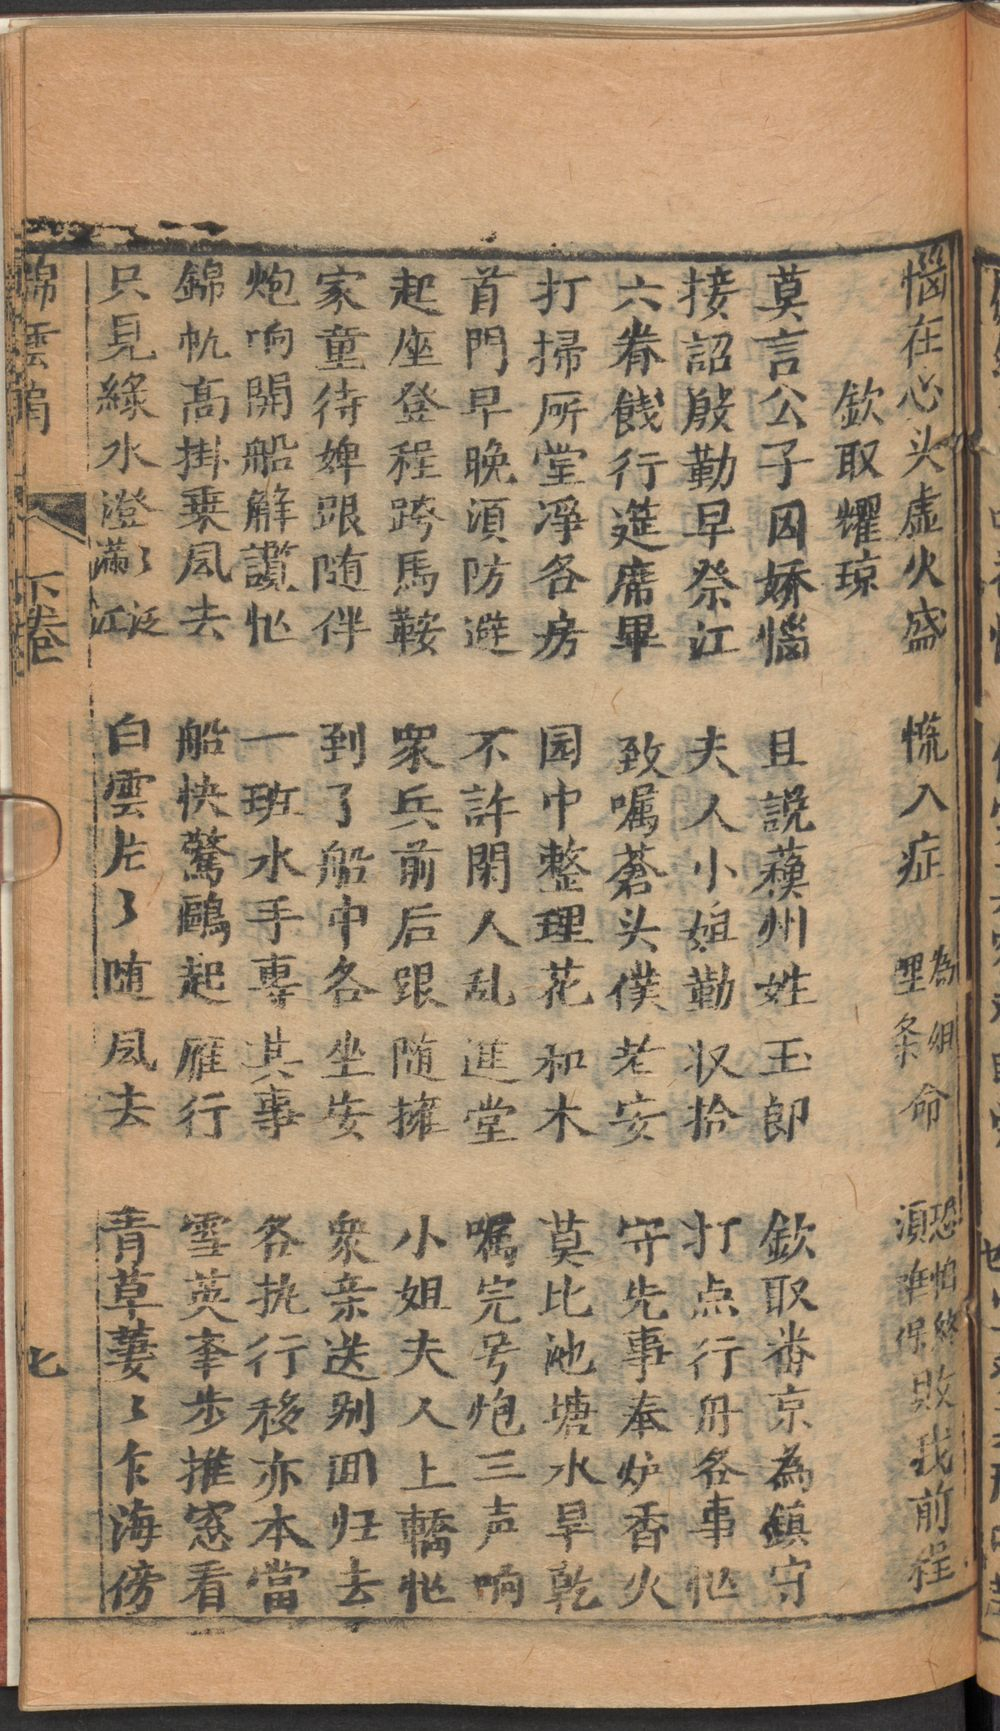 惱在心头虚火盛 慌入症 為姐哩条命 恐怕終須難保敗我前程
欽取耀琼
莫言公子因嬌惱 且説蘓州姓玉郎 欽取番京為鎮守
接詔殷勤早祭江 夫人小姐勤収拾 打点行舟各事忙
六眷餞行筵席畢 致嘱蒼头僕老安 守先事奉炉香火
打掃所堂凈各房 园中整理花和木 莫比池塘水旱乾
首門早晚湏防避 不許閑人乱進堂 嘱完号炮三声响
起座登程跨馬鞍 衆兵前后跟随擁 小姐夫人上轎忙
家童待婢跟随伴 到了船中各坐安 衆亲送别囬归去
炮响開船解纜忙 一班水手專其事 各执行移亦本當
錦帆高掛乗凨去 船快驚鷗起雁行 雪英奉步推窓看
只見綠水澄〻泛满江 白雲片〻随凨去 青草萋〻乍海傍
錦雲 下卷 七